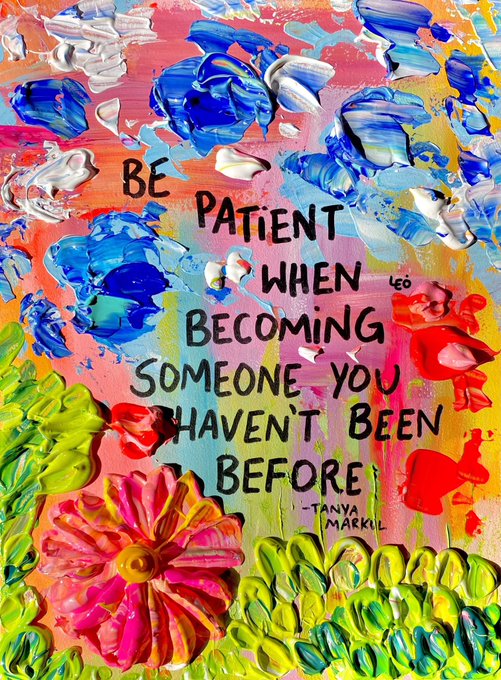 BE
PATiENT
WHEN
LEÓ
BECOMiNG
SOMEONE YOU
HAVEN'T BEEN
BEFORE
-TANYA
MARKUL